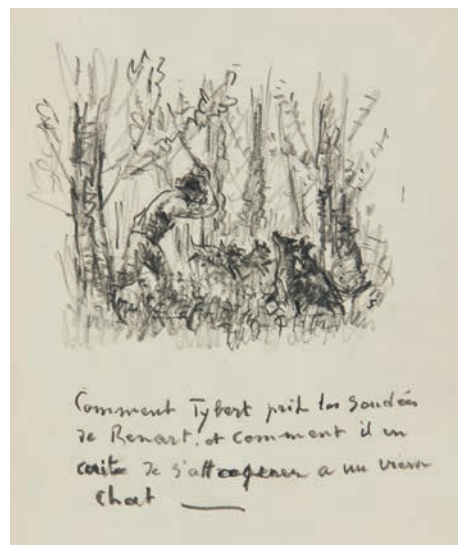 Comment Tybert prit les Soudées
de Renart, et comment il en
coûte de s'attaquer a un vieux
Chat